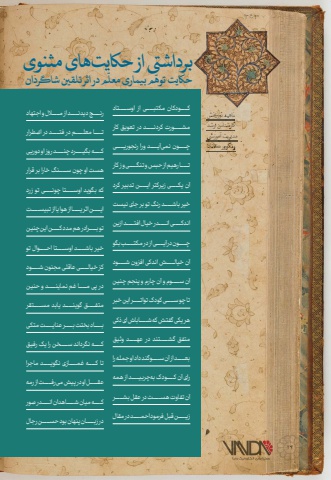 برداشتی از حکایت‌های مثنوی
حکایت توهم بیماری معلم در اثر تلقین شاگردان
کودکان مکتبی از اوستاد
رنج دیدند از ملال و اجتهاد
مشورت کردند در تعویق کار
تا معلم در فتد در اضطرار
چون نمی‌آید ورا رنجوریی
که بگیرد چند روز او دوریی
تا رهیم از حبس و تنگی و ز کار
هست او چون سنگ خارا برقرار
آن یکی زیرکتر این تدبیر کرد
که بگوید اوستا چونی تو زرد
خیر باشد رنگ تو بر جای نیست
این اثر یا از هوا یا از تبیست
اندکی اندر خیال افتد ازین
تو برادر هم مدد کن این چنین
چون درآیی از در مکتب بگو
خیر باشد اوستا احوال تو
آن خیالش اندکی افزون شود
کز خیالی عاقلی مجنون شود
آن سوم و آن چارم و پنجم چنین
در پی ما غم نمایند و حنین
تا چو سی کودک تواتر این خبر
متفق گویند یابد مستقر
هر یکی گفتش که شاباش ای ذکی
باد بختت بر عنایت متکی
متفق گشتند در عهد وثیق
که نگرداند سخن را یک رفیق
بعد از آن سوگند داد او جمله را
تا که غمازی نگوید ماجرا
رای آن کودک بچربید از همه
عقل او در پیش می‌رفت از رمه
آن تفاوت هست در عقل بشر
که میان شاهدان اندر صور
زین قبل فرمود احمد در مقال
در زبان پنهان بود حسن رجال